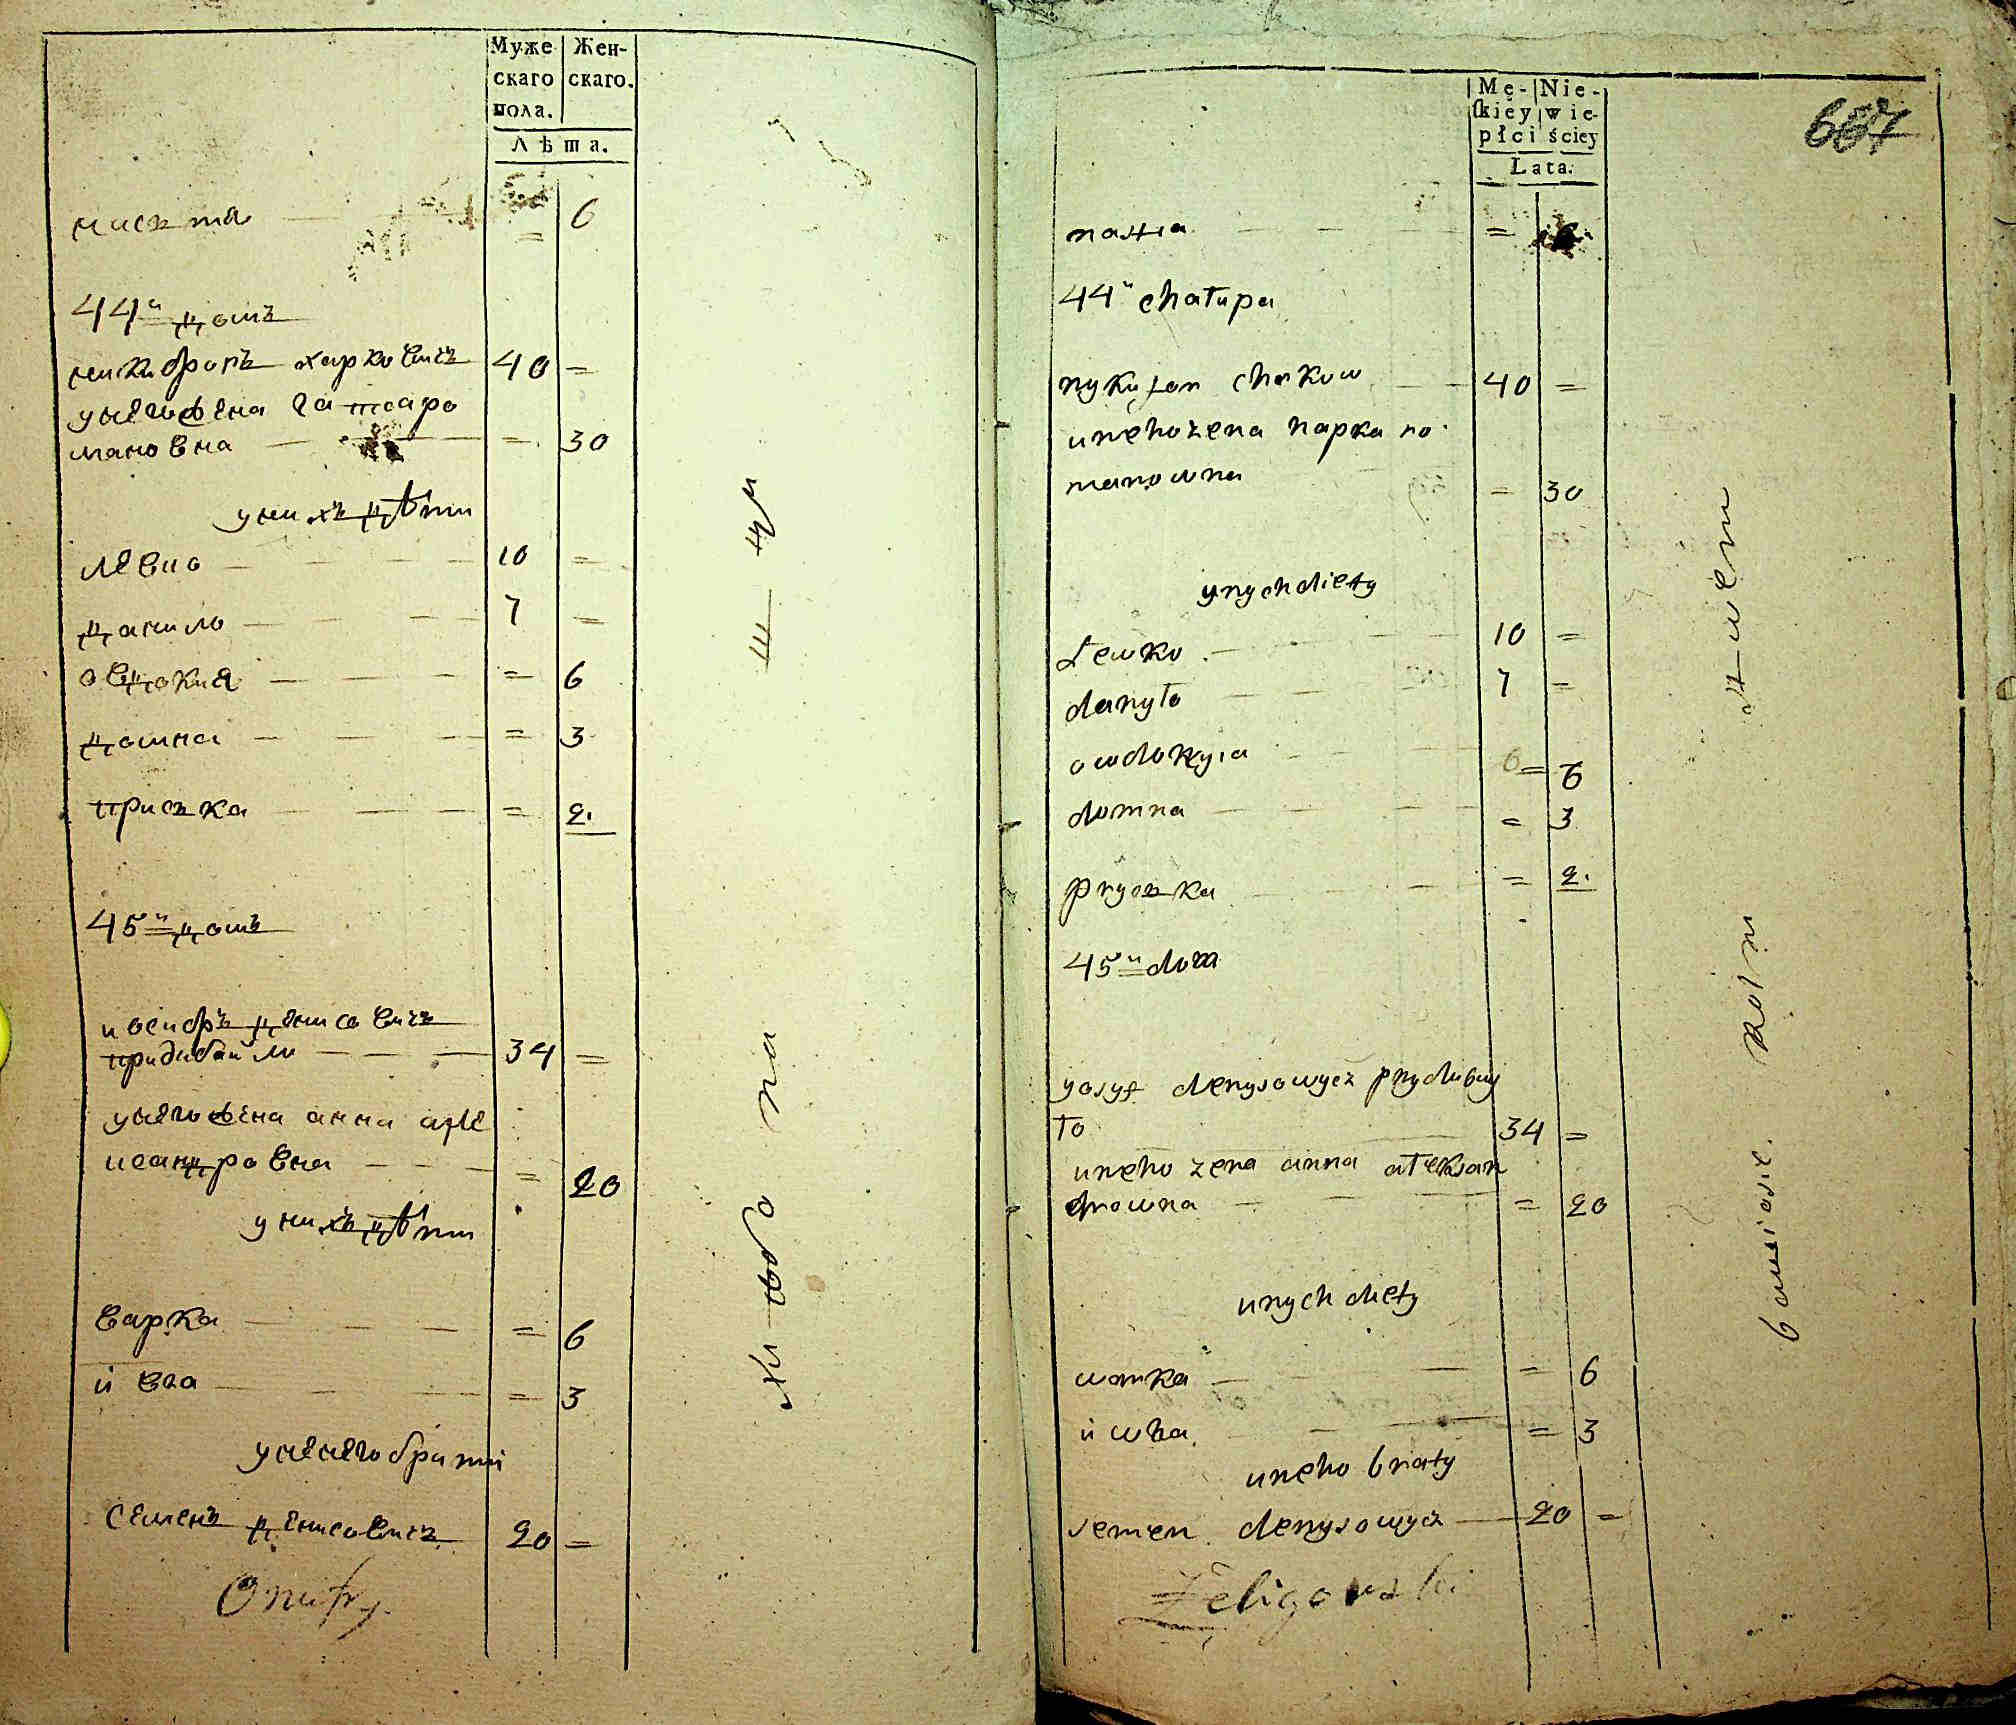 Муже Жен-
скаго скаго.
пола.
Лѣта.
= 6
44й домъ
никифоръ харковичъ 40 =
унегожена гапка ро
мановна = 30
унихъ дѣти
левко 10 =
данило 7 =
овдокия = 6
домна = 3
приська = 2.
45й домъ
иосифъ денисовичъ
34 =
унегожена анна але
ксандровна = 20
унихъ дѣти
варка = 6
и ева = 3
унего брати
семенъ денисовичъ 20 =
Onufry
Mę- Nie-
ſkiey wie-
płci ściey
Lata.
667
=
44й chałupa
nykyfor charkow 40 =
uneho żena hapka ro
manowna = 30
ynych diety
Lewko 10 =
danyło 7 =
owdokyia = 6
domna = 3
pryska = 2.
45й dom
yosyf denysowycz prydybay
ło 34 =
uneho zena anna ałeksan
drowna = 20
unych diety
warka = 6
= 3
uneho braty
semen denysowycz 20 =
Żeligowski